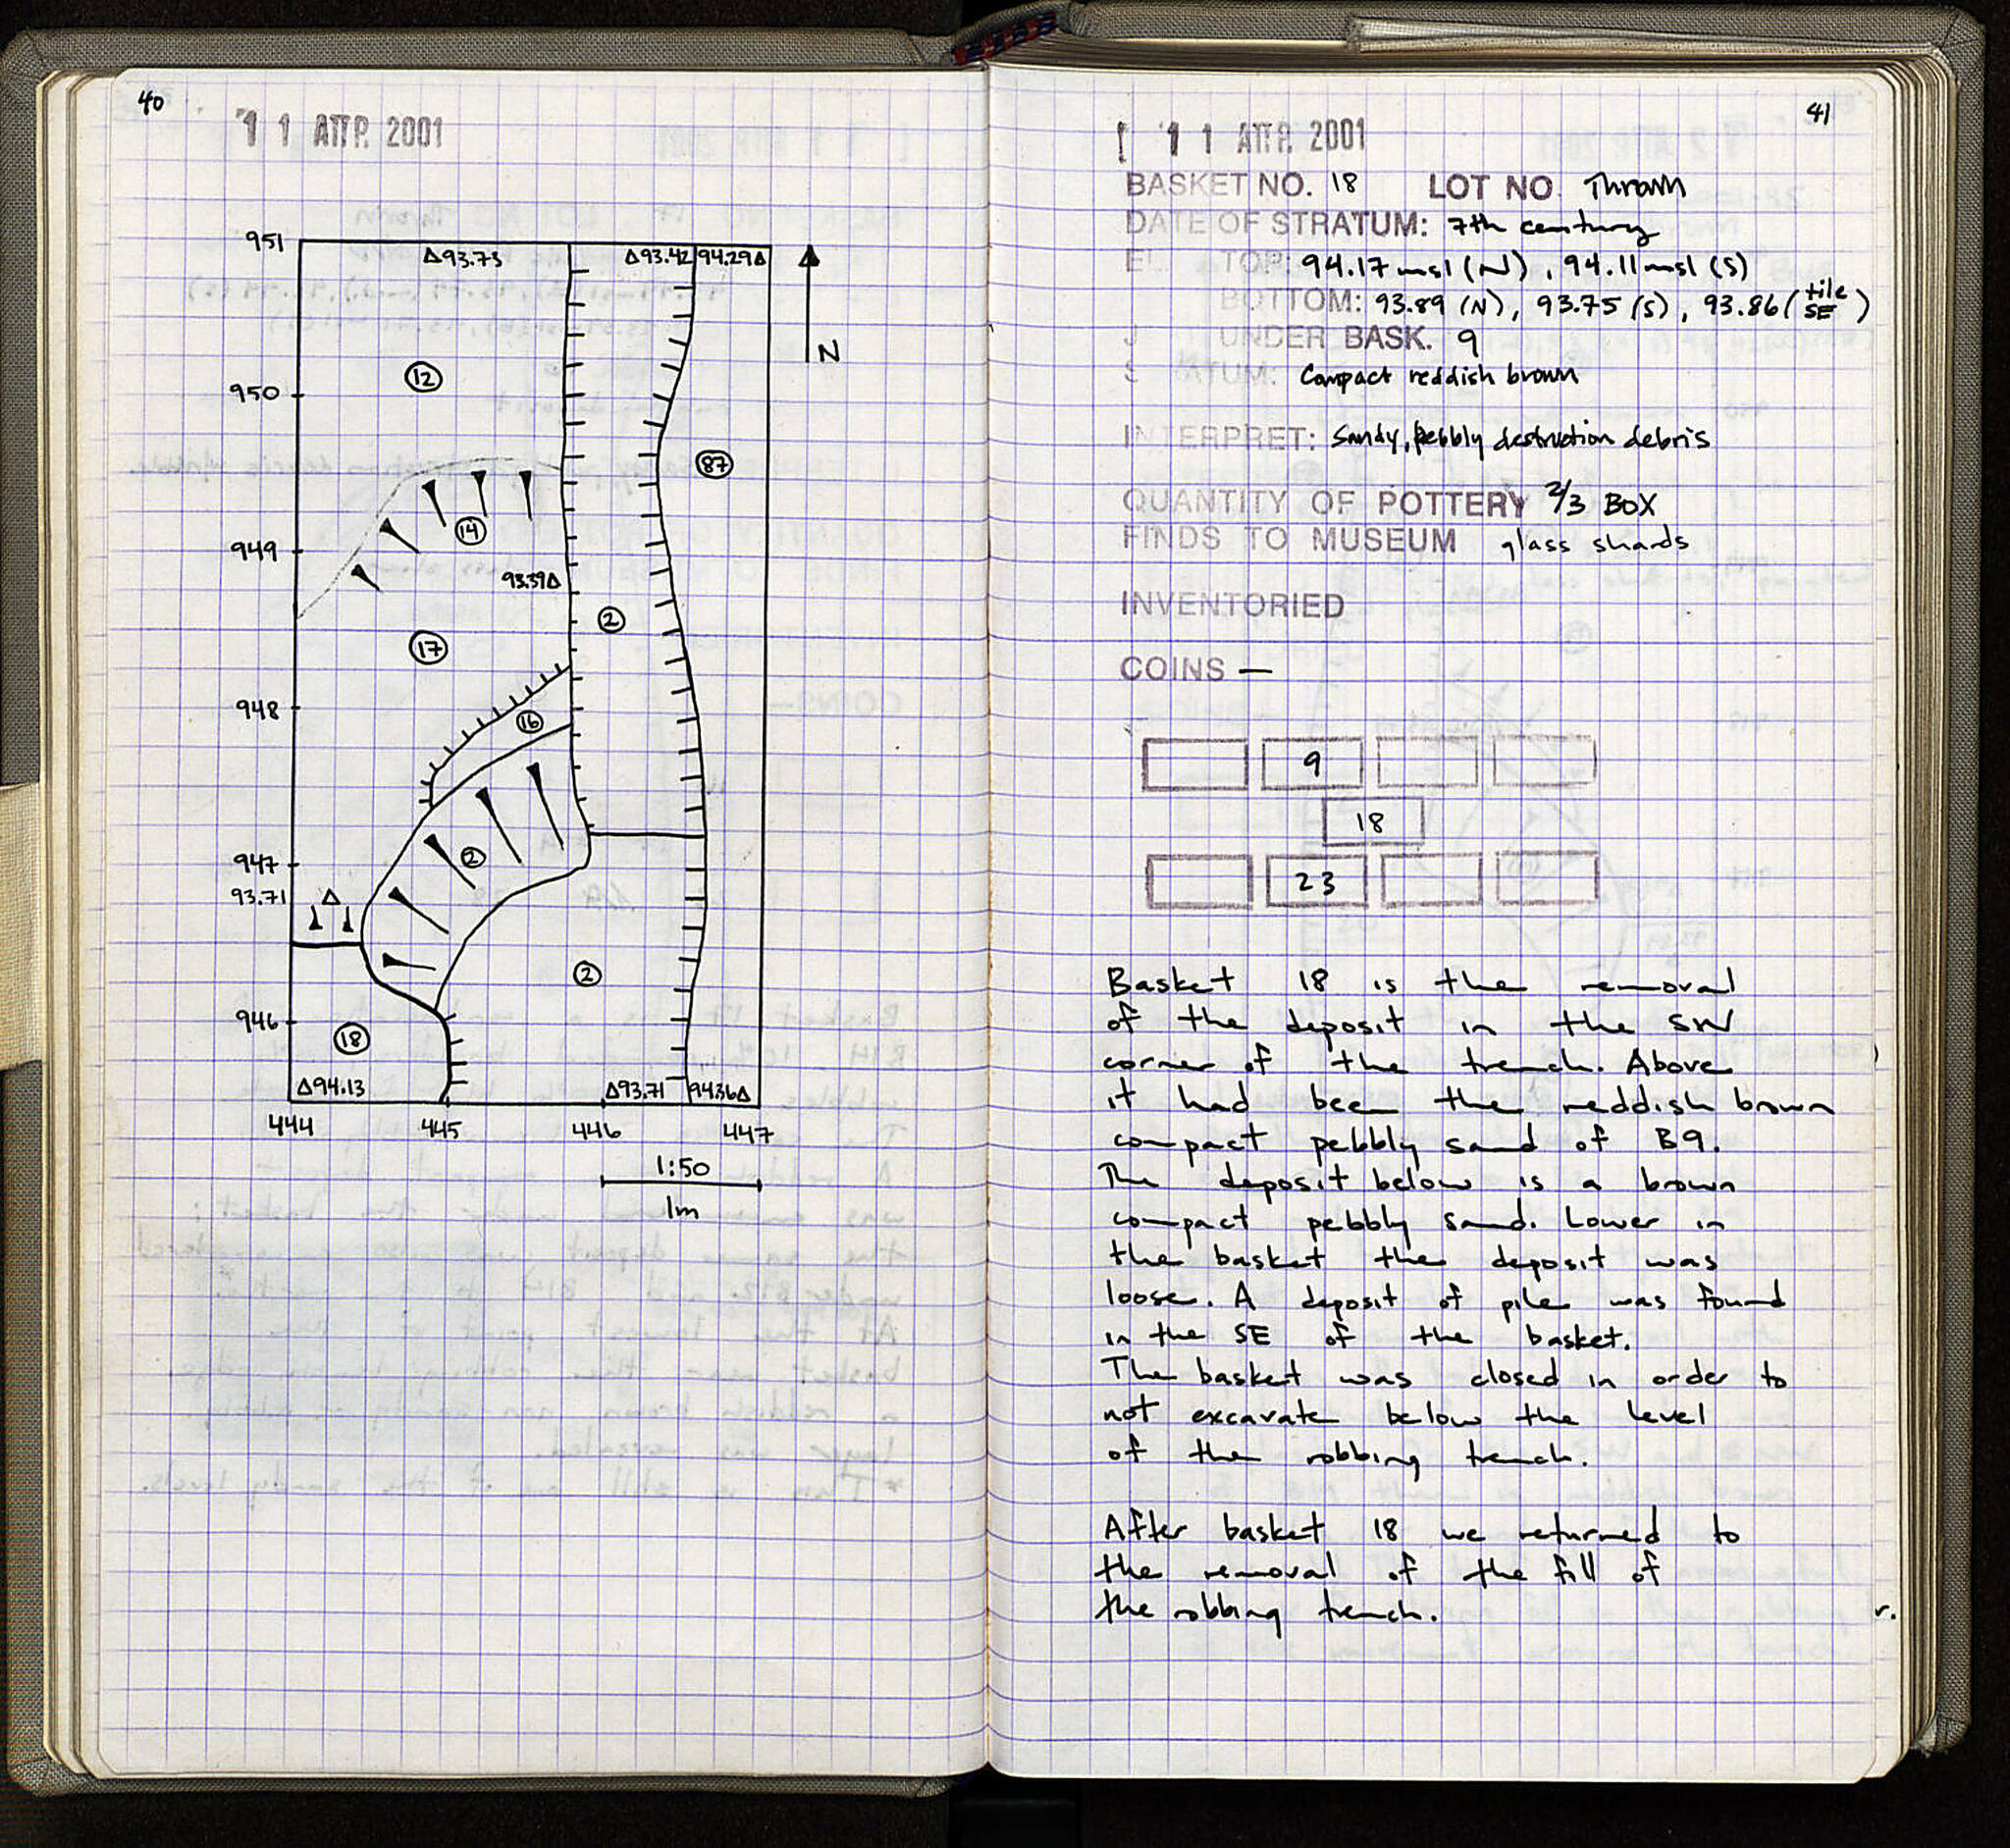 40
11 ΑΠΡ. 2001
951
Δ93.73
Δ93.42
94.29Δ
N
12
950
87
14
949
93.39Δ
2
17
948
16
2
947
93.71
Δ
2
946
18
Δ94.13
Δ93.71
94.36Δ
444 445 446 447
1:50
1m
41
11 ΑΠΡ. 2001
BASKET NO. 18 LOT NO. Thrown
DATE OF STRATUM: 7th century
EL TOP: 94.17 msl (N), 94.11 msl (S)
BOTTOM: 93.89 (N), 93.75 (S), 93.86 (tile SE)
UNDER BASK. 9
ATUM: Compact reddish brown
INTERPRET: Sandy, pebbly destruction debris
QUANTITY OF POTTERY 2/3 BOX
FINDS TO MUSEUM glass shards
INVENTORIED
COINS —
9
18
23
Basket 18 is the removal
of the deposit in the SW
corner of the trench. Above
it had been the reddish brown
compact pebbly sand of B9.
The deposit below is a brown
compact pebbly sand. Lower in
the basket the deposit was
loose. A deposit of pile was found
in the SE of the basket.
The basket was closed in order to
not excavate below the level
of the robbing trench.
After basket 18 we returned to
the removal of the fill of
the robbing trench.